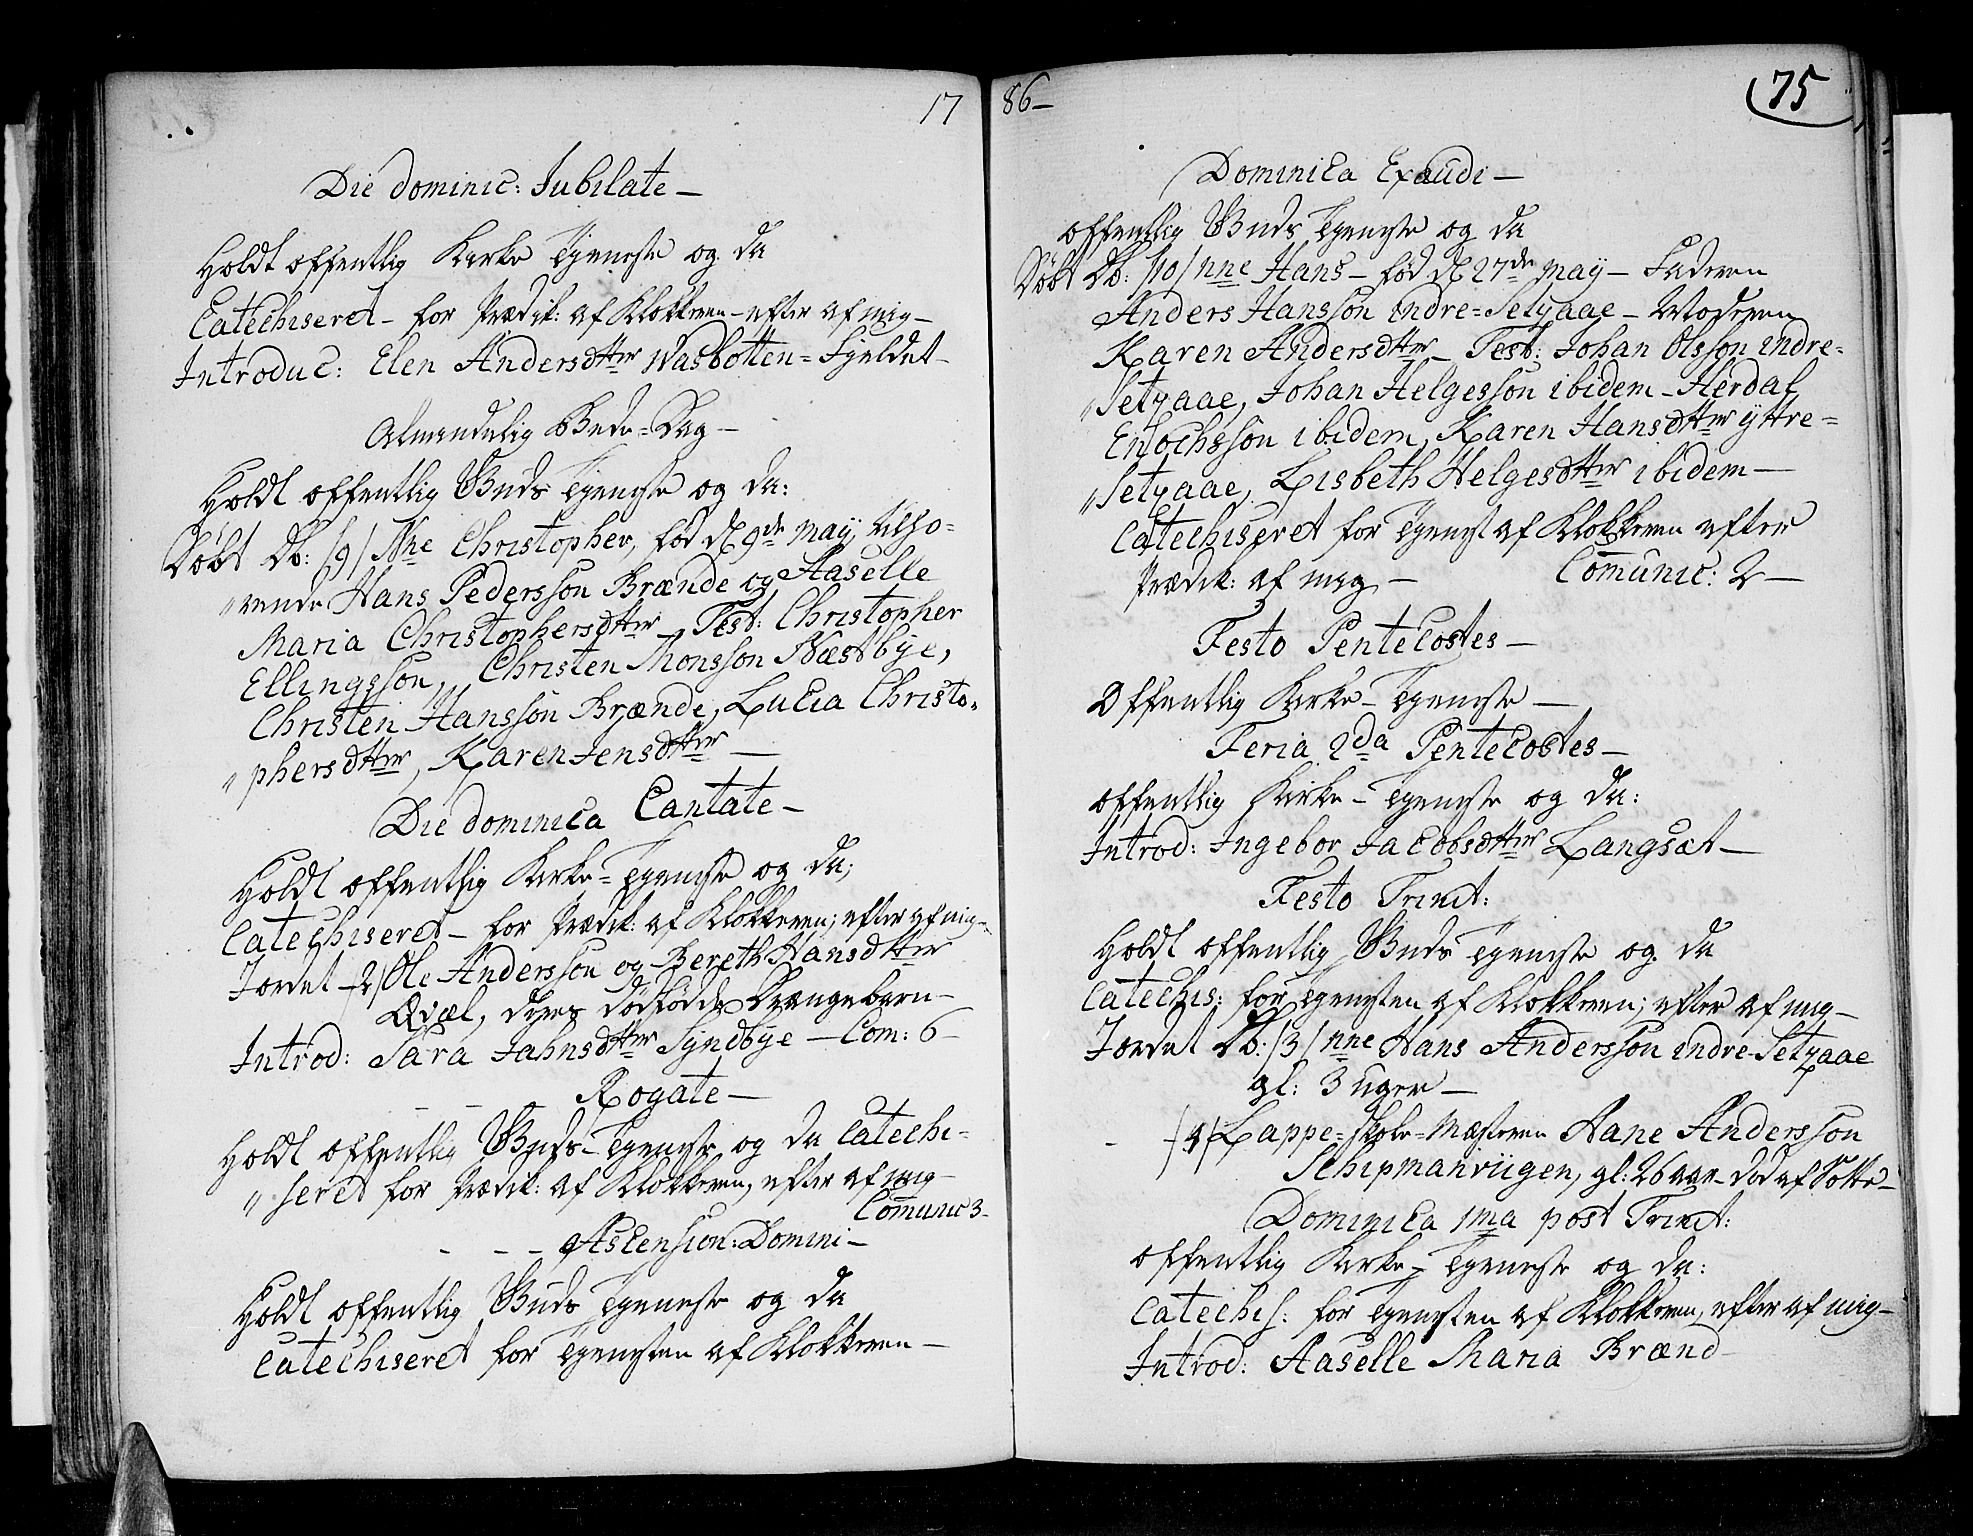 17
Die dominic: Jubilate -
Holdt offentlig Kirke Tjeneste og da
Catechiseret - for Prædik: af Klokkeren - efter af mig -
Introduc: Elen Andersdtter Wasbotten = Fjeldet -
Almindelig Bede = Dag -
Holdt offentlig Guds Tjeneste og da:
Døbt Db: /9/ Nne Christopher, fød d 9de May, tilhø=
"rende Hans Pedersson Brænde og Aaselle
Maria Christophersdtter Test: Christopher
Ellingsson, Christen Monsson Næstbye,
Christen Hansson Brænde, Lucia Christo=
"phersdtter, Karen Jensdtter -
Die dominica Cantate -
Holdt offentlig Kirke = Tjeneste og da;
Catechiseret - for Prædik: af Klokkeren; efter af mig -
Jordet - /2/ Ole Andersson og Bereth Hansdtter
Qviæl, dødfødde Drængebarn -
Introd: Sara Jahnsdtter Syndbye - Com: 6 -
Rogate -
Holdt offentlig Guds - Tjeneste og da Catechi=
"seret for Prædik: af Klokkeren, efter af mig -
Comunic 3 -
Ascension: Domini -
Holdt offentlig Guds Tjeneste og da
Catechiseret for Tjenesten af Klokkeren -
86 -
75
Dominica Exaudi -
offentlig Guds Tjeneste og da
Døbt Db: /10/ nne Hans - fød d 27de May - Faderen
Anders Hansson indre = Setzaae - Moderen
Karen Andersdtter - Test: Johan Olsson indre=
"Setzaae, Johan Helgesson ibidem - Herdal
Enochsson ibidem, Karen Hansdtter yttre=
"Setzaae, Lisbeth Helgesdtter ibidem -
Catechiseret for Tjenest af Klokkeren efter
Prædik: af mig - Comunic: 2 -
Festo Pentecostes -
Offentlig Kirke - Tjeneste -
Feria 2da Pentecostes -
offentlig Kirke - Tjeneste og da:
Introd: Ingebor Jacobsdtter Langsæt -
Festo Trinit:
Holdt offentlig Guds Tjeneste og da
Catechis: for Tjenesten af Klokkeren; efter af mig -
Jordet Db: /3/ nne Hans Andersson indre - Setzaae
gl: 3 uger -
- /4/ Lappe = Skole = Mesteren Aane Andersson
Schipmanviigen, gl: 26 aar - død af Sotte -
Dominica 1ma post Trinit:
offentlig Kirke - Tjeneste og da:
Catechis: for Tjenesten af Klokkeren, efter af mig -
Introd: Aaselle Maria Brænd -